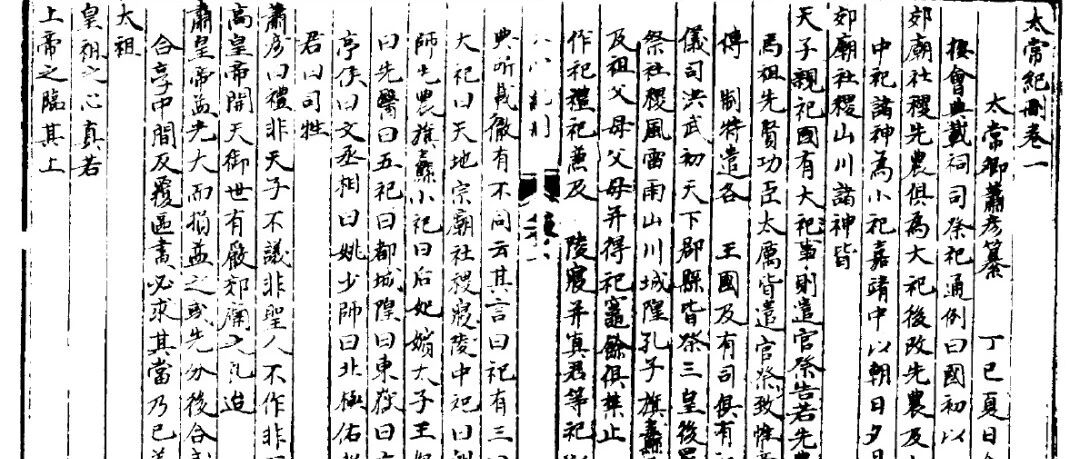 太常紀冊卷一
太常卿蕭彥纂　丁巳夏日
按會典載祠司祭祀通例曰國初以
郊廟社稷先農俱為大祀後改先農及
中祀諸神為小祀嘉靖中以朝日夕月
郊廟社稷山川諸神皆
天子親祀國有大祀事則遣官祭告若先
馬祖先賢功臣太厲皆遣官祭致惟
傳　制特遣各　王國及有司俱有
儀司洪武初天下郡縣皆祭三皇後罷
祭社稷風雷雨山川城隍孔子旗纛
及祖父母父母并得祀竈餘俱禁止
作祀禮祀兼及　陵寢并真君等祀
典所載徵有不同云其言曰祀有三曰
大祀曰天地宗廟社稷寢陵中祀曰
師先農旗纛小祀曰后妃嬪太子王
曰先醫曰五祀曰都城隍曰東嶽曰
亭侯曰文丞相曰姚少師曰北極佑
君曰司牲
蕭彥曰禮非天子不議非聖人不作非
高皇帝開天御世有嚴郊廟之禮迨
肅皇帝益光大而損益之或先分後合
合享中間反覆區畫必求其當乃已
太祖
皇祖之心真若
上帝之臨其上